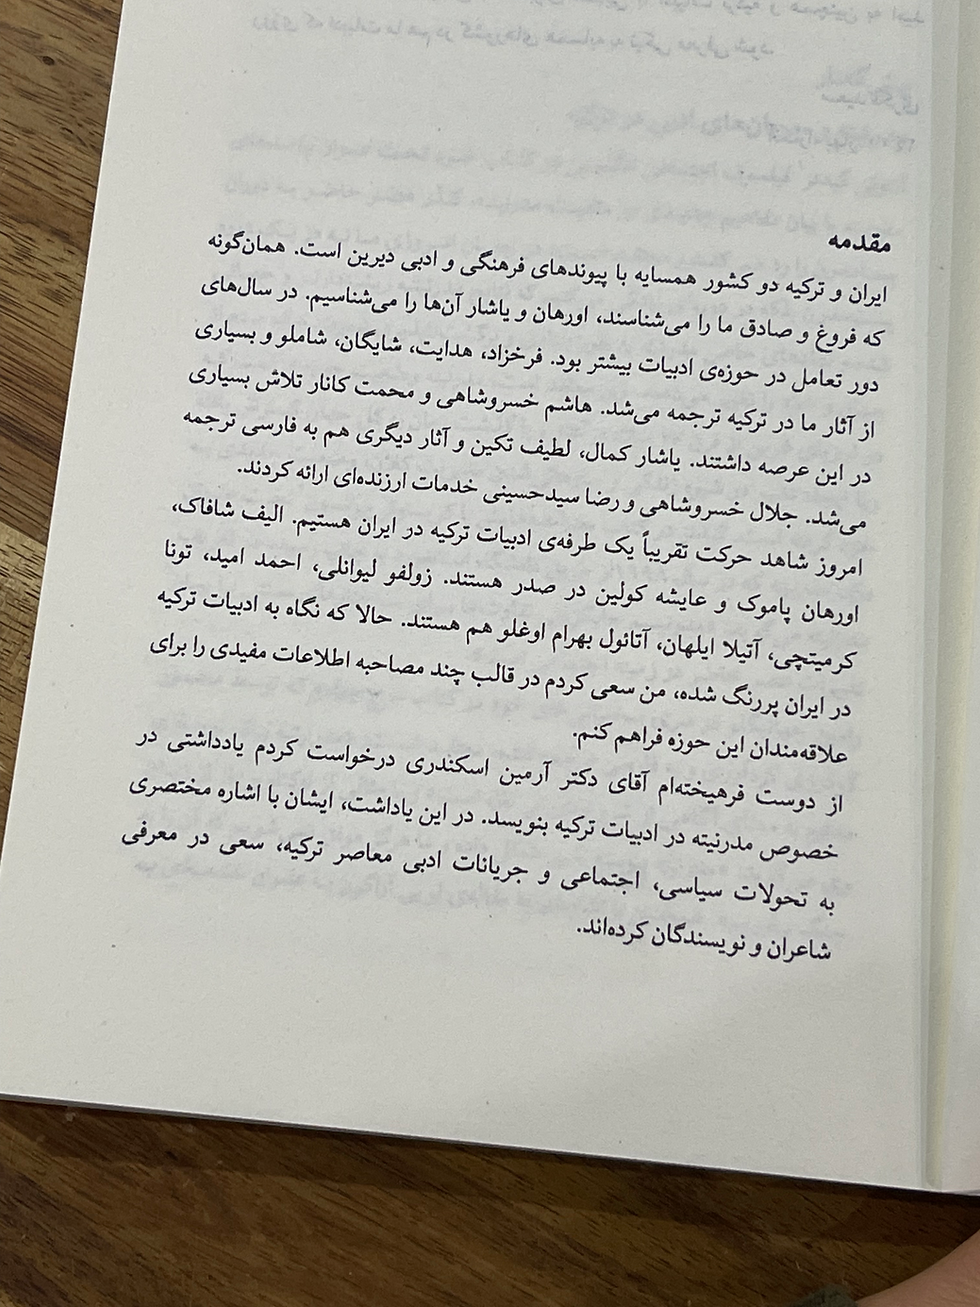 مقدمه
ایران و ترکیه دو کشور همسایه با پیوندهای فرهنگی و ادبی دیرین است. همان‌گونه
که فروغ و صادق ما را می‌شناسند، اورهان و یاشار آن‌ها را می‌شناسیم. در سال‌های
دور تعامل در حوزه‌ی ادبیات بیشتر بود. فرخزاد، هدایت، شایگان، شاملو و بسیاری
از آثار ما در ترکیه ترجمه می‌شد. هاشم خسروشاهی و محمت کانار تلاش بسیاری
در این عرصه داشتند. یاشار کمال، لطیف تکین و آثار دیگری هم به فارسی ترجمه
می‌شد. جلال خسروشاهی و رضا سیدحسینی خدمات ارزنده‌ای ارائه کردند.
امروز شاهد حرکت تقریباً یک طرفه‌ی ادبیات ترکیه در ایران هستیم. الیف شافاک،
اورهان پاموک و عایشه کولین در صدر هستند. زولفو لیوانلی، احمد امید، تونا
کرمیتچی، آتیلا ایلهان، آتائول بهرام اوغلو هم هستند. حالا که نگاه به ادبیات ترکیه
در ایران پررنگ شده، من سعی کردم در قالب چند مصاحبه اطلاعات مفیدی را برای
علاقه‌مندان این حوزه فراهم کنم.
از دوست فرهیخته‌ام آقای دکتر آرمین اسکندری درخواست کردم یادداشتی در
خصوص مدرنیته در ادبیات ترکیه بنویسد. در این یاداشت، ایشان با اشاره مختصری
به تحولات سیاسی، اجتماعی و جریانات ادبی معاصر ترکیه، سعی در معرفی
شاعران و نویسندگان کرده‌اند.